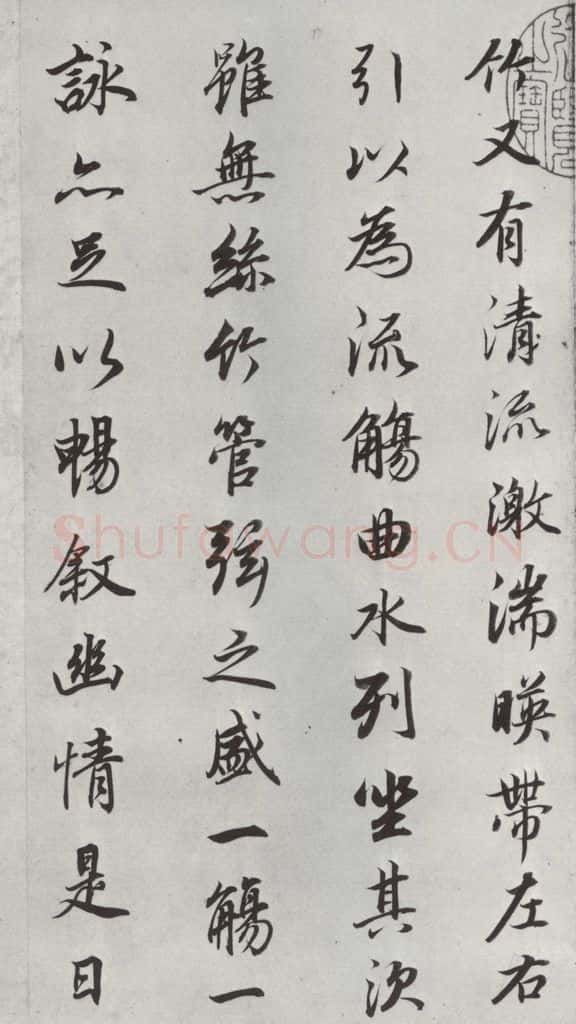 竹又有清流激湍暎帶左右
引以為流觴曲水列坐其次
雖無絲竹管弦之盛一觴一
詠亦足以暢叙幽情是日
Shufawang.CN